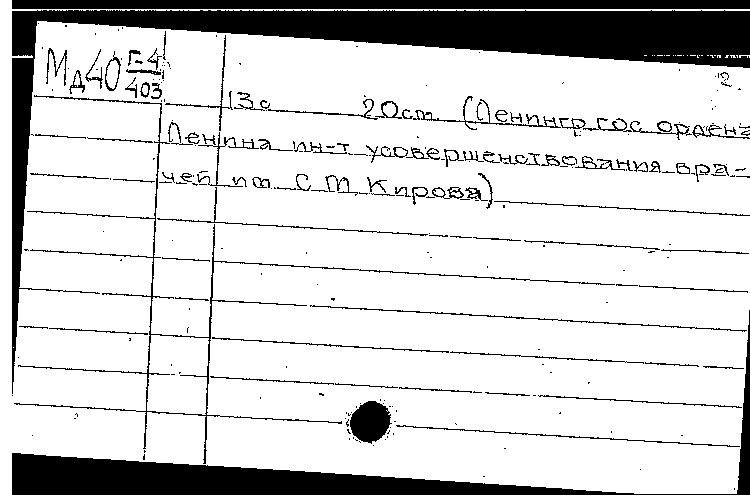 2.
Мд40 Г-4/403
13с 20см (Ленингр. гос. ордена
Ленина ин-т усовершенствования вра-
чей им. С. М. Кирова).